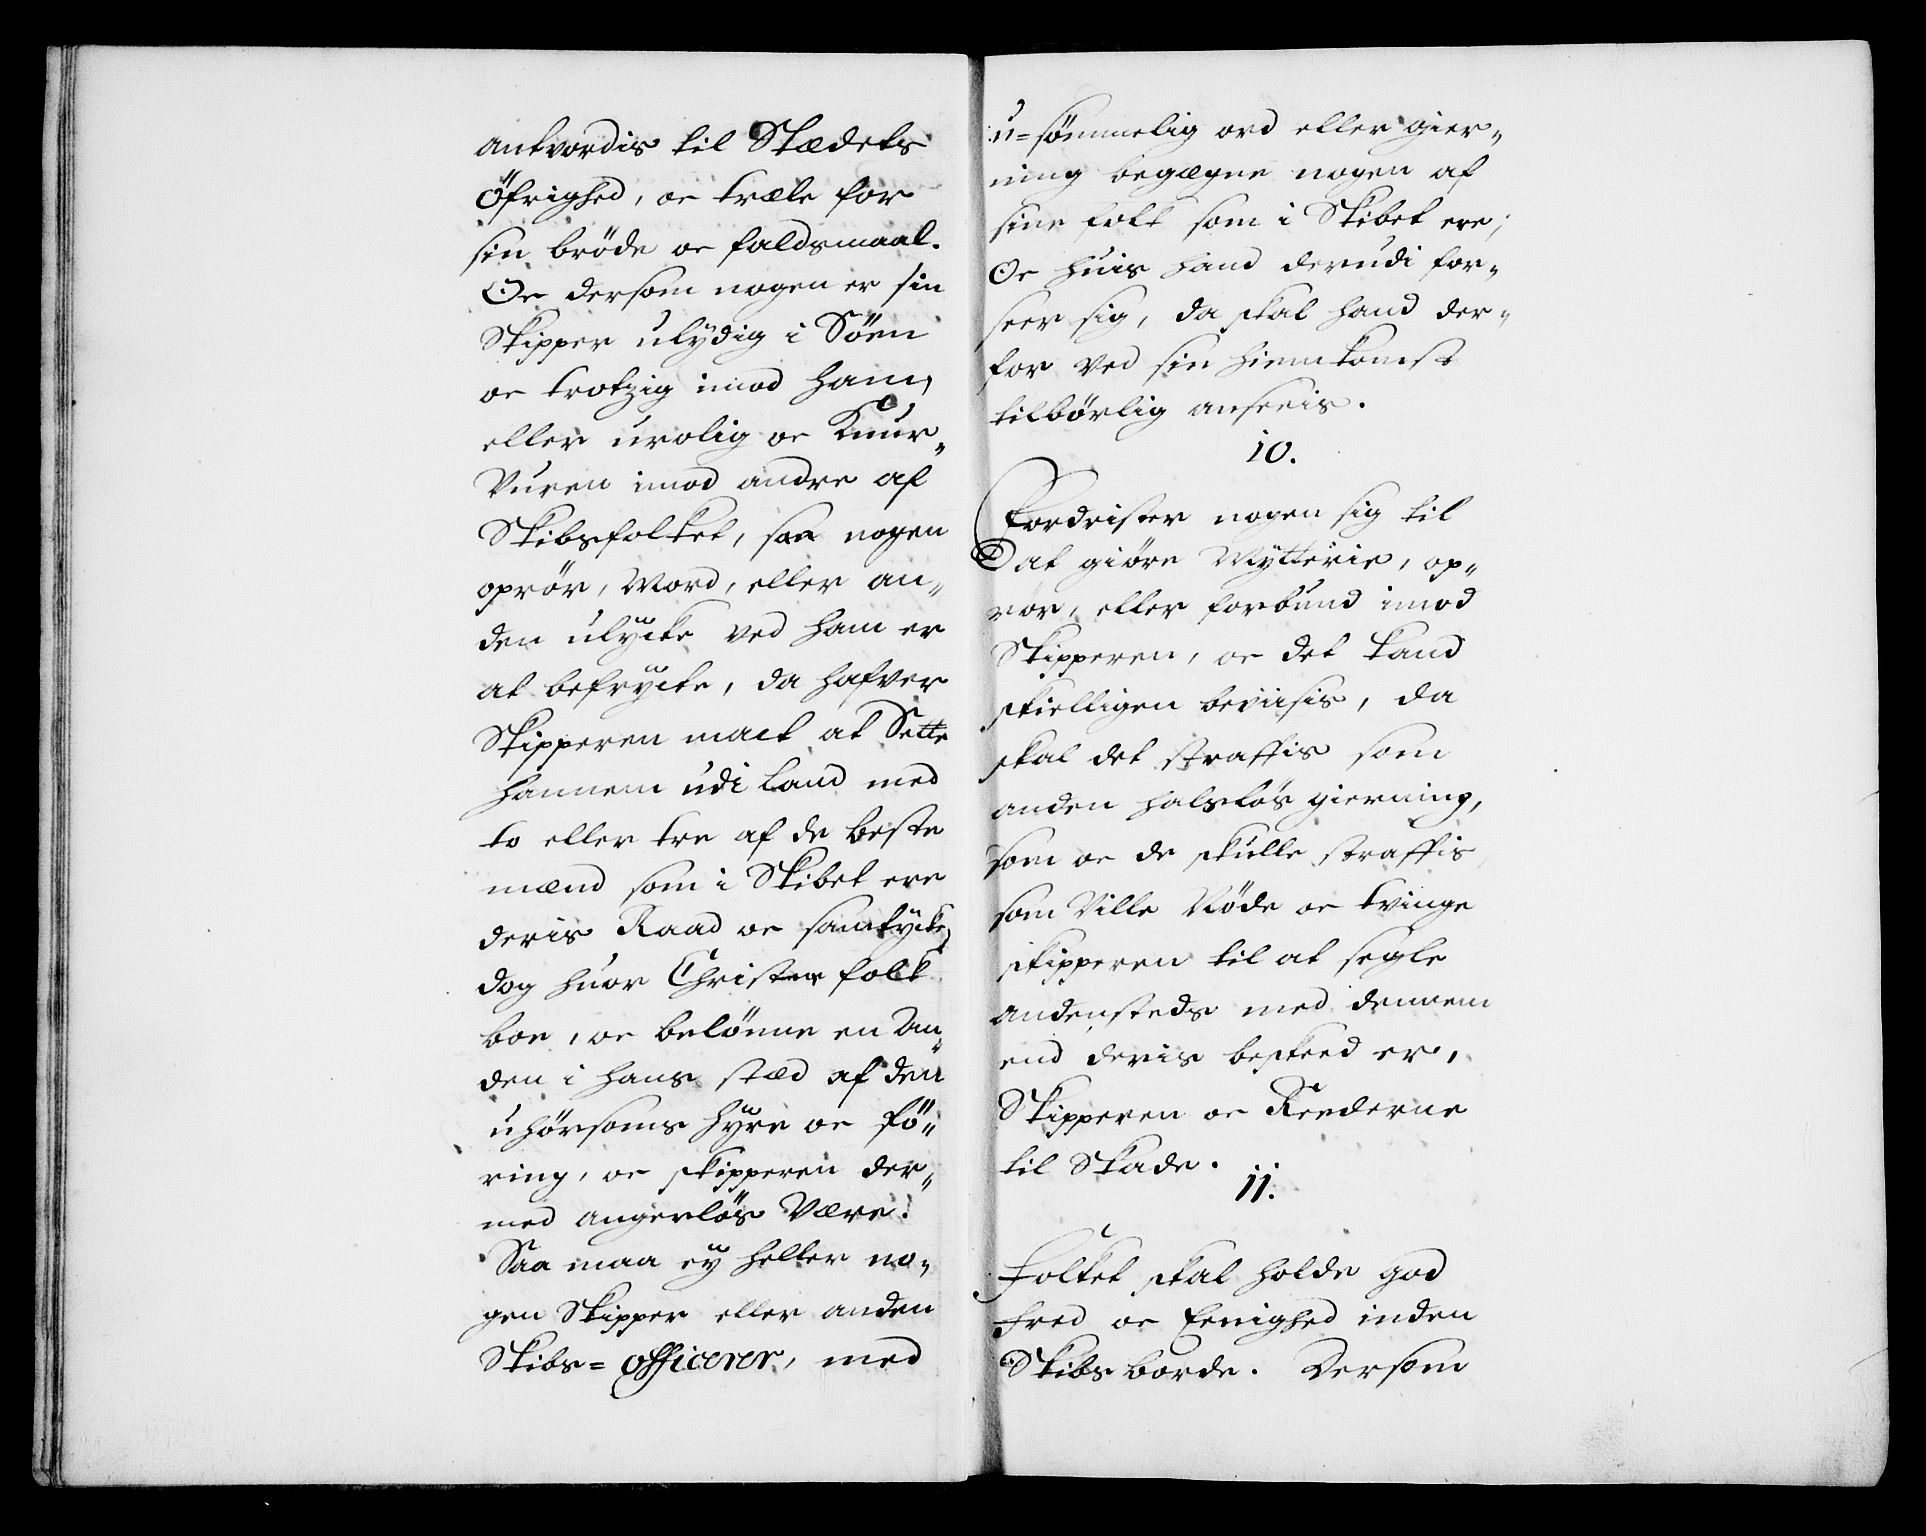 antvordis til Stædets
Öfrighed, oc træle for
sin bröde oc faldsmaal.
Oc dersom nogen er sin
Skipper ulÿdig i Söen
oc trotzig imod ham,
eller urolig oc Knur„
Vuren imod andre af
Skibsfolket, saa nogen
oprör, Mord, eller an„
den ulÿcke ved ham er
at befrÿcte, da hafver
Skipperen mact at Sette
hannem udi Land med
to eller tre af de beste
mænd som i Skibet ere
deris Raad oc samtÿcke,
dog huor Christen folck
boe, oc belönne en An„
den i hans stæd af den
uhörsoms hÿre oc fö„
ring, oc skipperen der„
med angerlös Være.
Saa maa eÿ heller no„
gen Skipper eller anden
Skibs= officerer, med
u=sömmelig ord eller gier„
ning begægne nogen af
sine folk som i Skibet ere;
Oc huis hand derudi for„
seer sig, da skal hand der„
for ved sin hiemkomst
tilbørlig anseeis.
10.
Fordrister nogen sig til
at giöre Mÿtterie, op„
rör, eller forbund imod
Skipperen, oc det kand
skielligen beviisis, da
skal det straffis som
anden halslös gierning,
som oc de skulle straffis
som Ville Nöde oc tvinge
skipperen til at segle
andensteds med dennem
end deris beskeed er,
Skipperen oc Reederne
til Skade.
11.
Folket skal holde god
Fred oc Eenighed inden
Skibs borde. Dersom